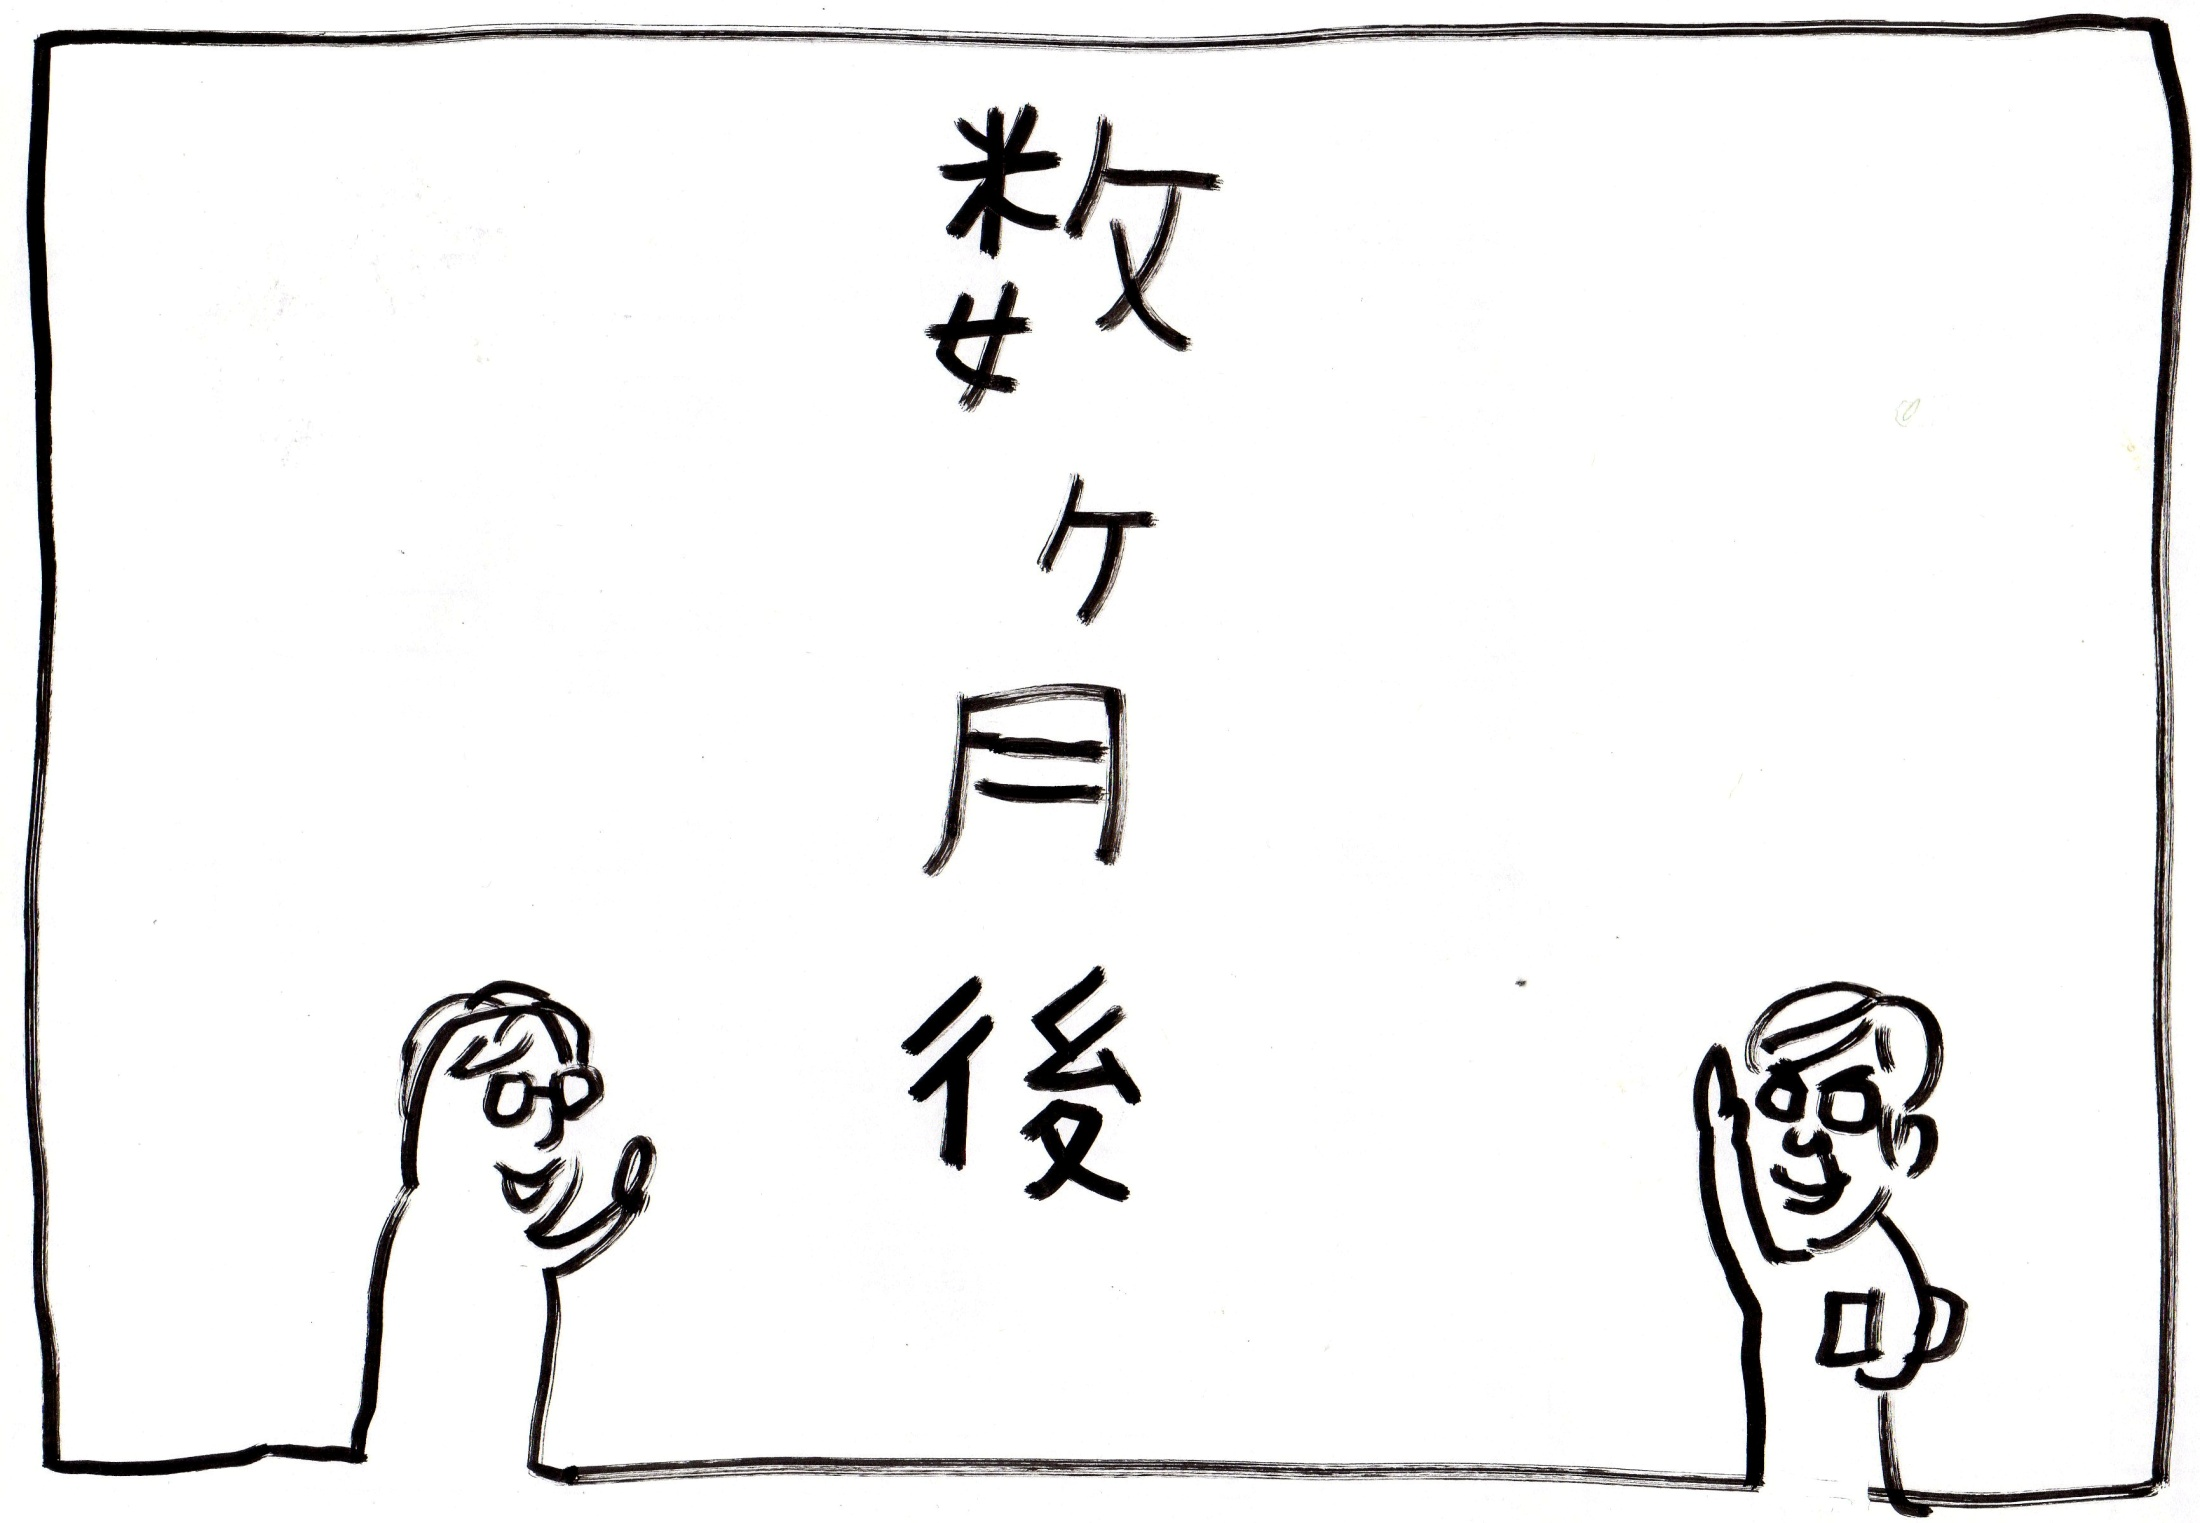 数ヶ月後